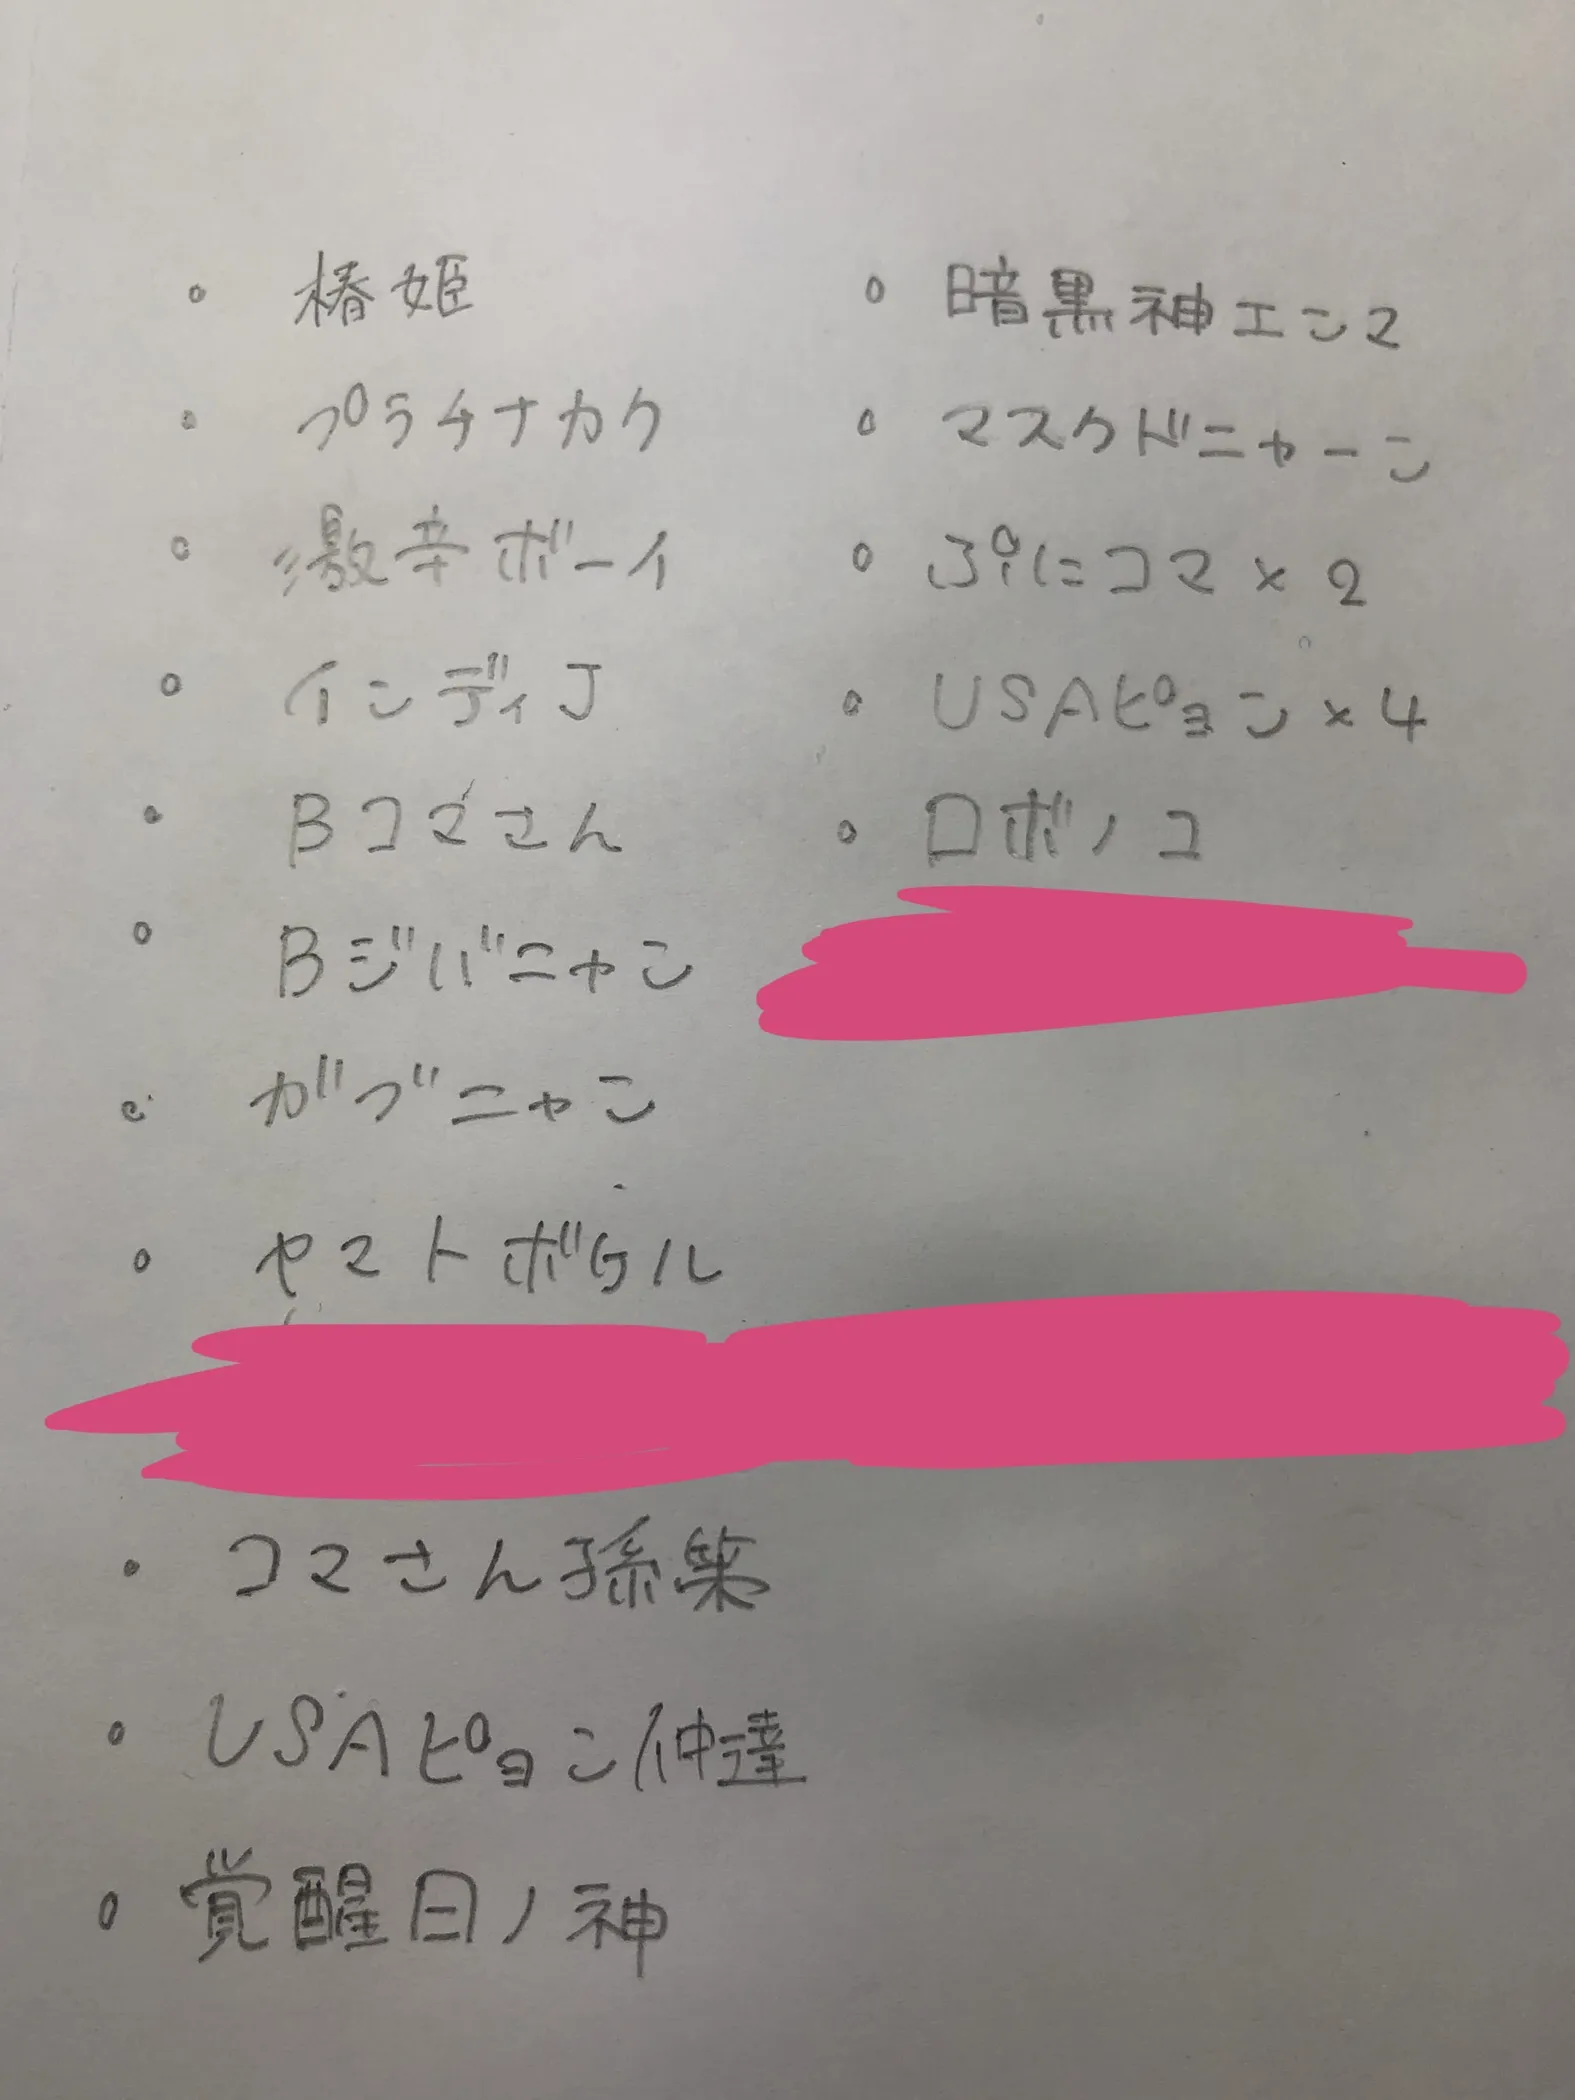 ・椿姫
・プラチナカク
・激辛ボーイ
・インディJ
・Bコマさん
・Bジバニャン
・ガブニャン
・ヤマトボグル
・コマさん孫策
・USAピョン仲達
・覚醒日ノ神
・暗黒神エンマ
・マスクドニャーン
・ぷにコマ×2
・USAピョン×4
・ロボノコ